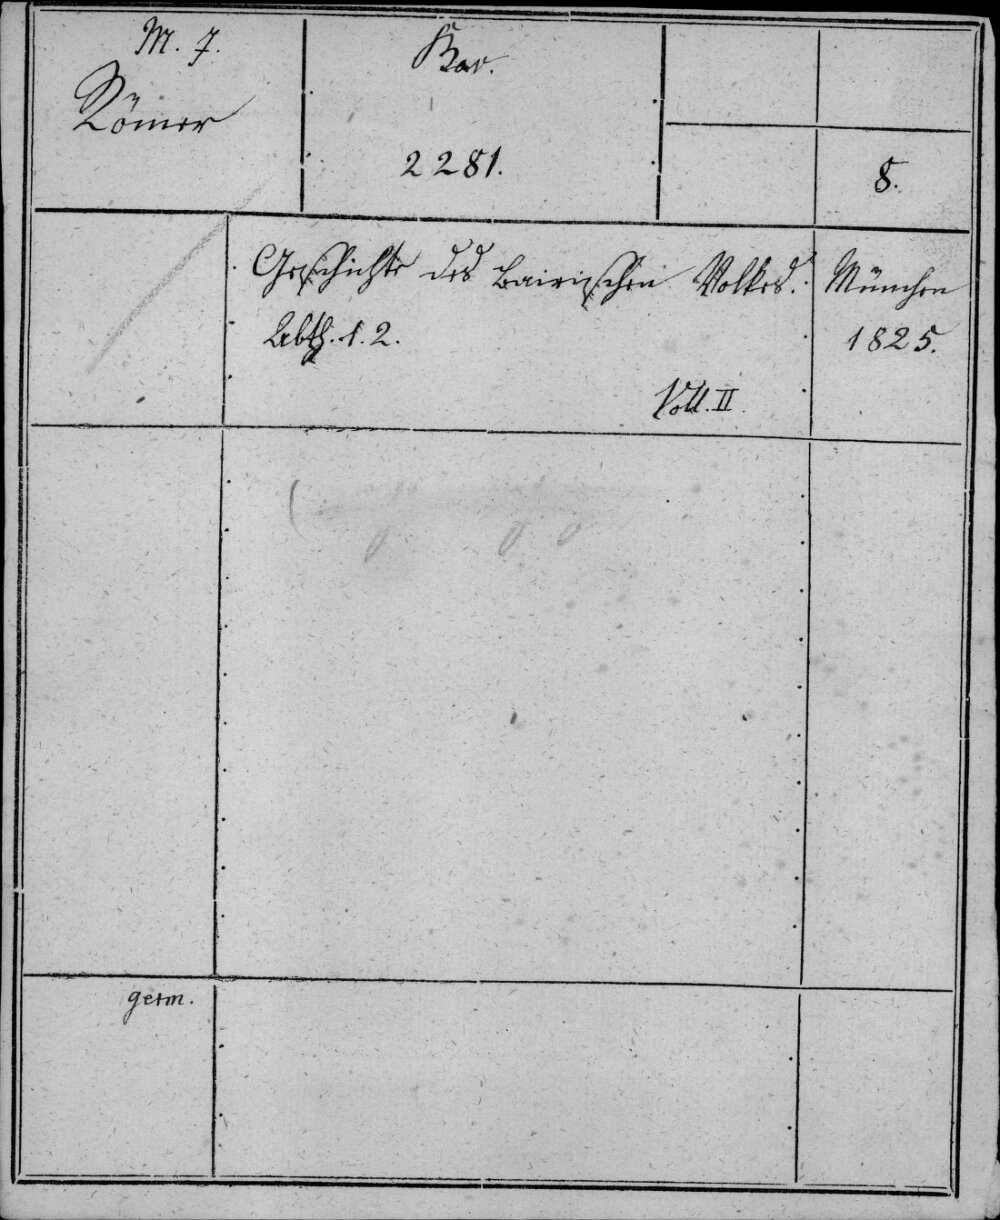 M. 7.
Römer
Bav.
2281.
8.
Geschichte des bairischen Volkes.
Abth. 1. 2.
Voll. II.
München
1825.
germ.